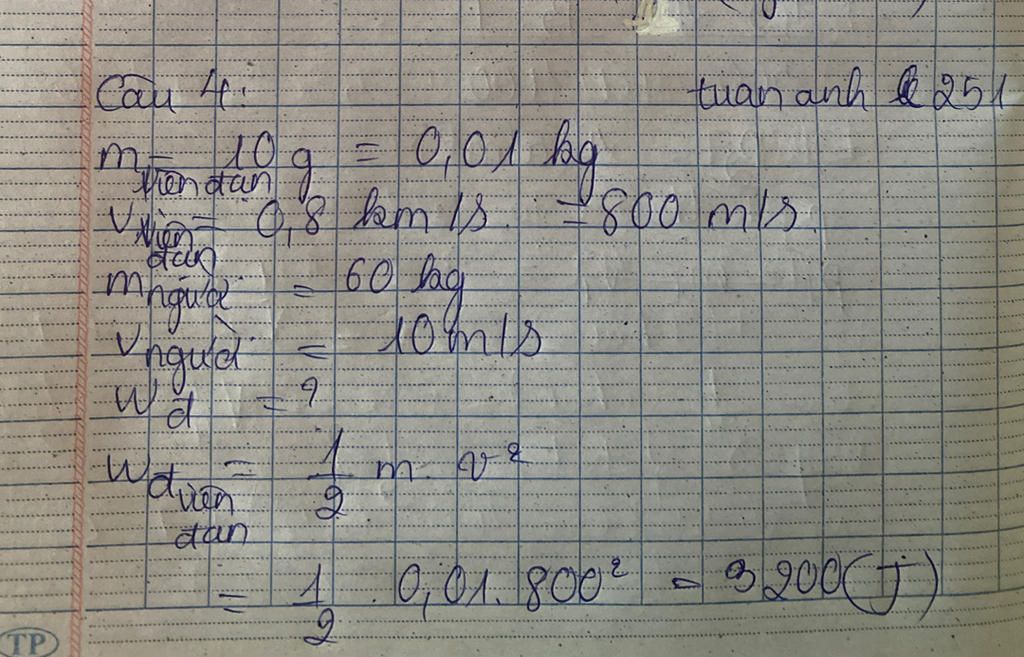 Câu 4: tuan anh k 251
m viên đạn = 10 g = 0,01 kg
v viên đạn = 0,8 km/s = 800 m/s
m người = 60 kg
v người = 10 m/s
W đ = ?
W đ viên đạn = 1/2 m. v²
= 1/2 . 0,01. 800² = 3200 (J)
TP